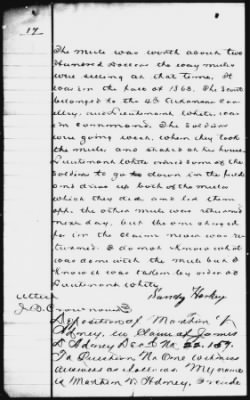 17
The mule was worth about two
Hundred Dollars the way mules
were selling at that time. It
was in the fall of 1863. The Scout
belonged to the 4th Arkansas Cav-
alry, and Lieutenant White was
in command. The Soldiers
were going west, when they took
the mule, and staid at his house
Lieutenant White ordered some of the
Soldiers to go down in the field
and drive up both of the mules
which they did, and led them
off. the other mule was returned
next day, but the one charged
for in the claim never was re-
turned. I do not know what
was done with the mule but I
know it was taken by order of
Lieutenant White.
Sandy
Attest
J. D.
Deposition of
Adney, in Claim of James
D Adney Dec'd No. 22.159.
To Question No One witness
answers as follows. My name
is W. Adney, I reside